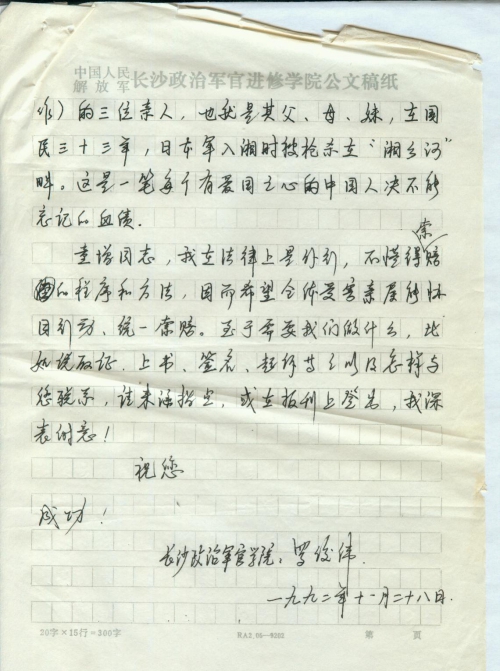 中国人民
解放军 长沙政治军官进修学院公文稿纸
)的三位亲人，也就是其父、母、妹，在国
民三十三年，日本军入湘时被枪杀在“湘乡河”
畔。这是一笔每个有爱国之心的中国人决不能
忘记的血债.
童增同志，我在法律上是外行，不懂得索赔
的程序和方法，因而希望全体受害亲属能休
目行动、统一索赔。至于需要我们做什么，比
如说取证、上书、签名、起诉等等以及怎样与
您联系，请来函指出，或在报刊上登出，我深
表谢意！
祝您
成功！
长沙政治军官学院、罗俊伟.
一九九二年十一月二十八日.
20字×15行=300字
第 页